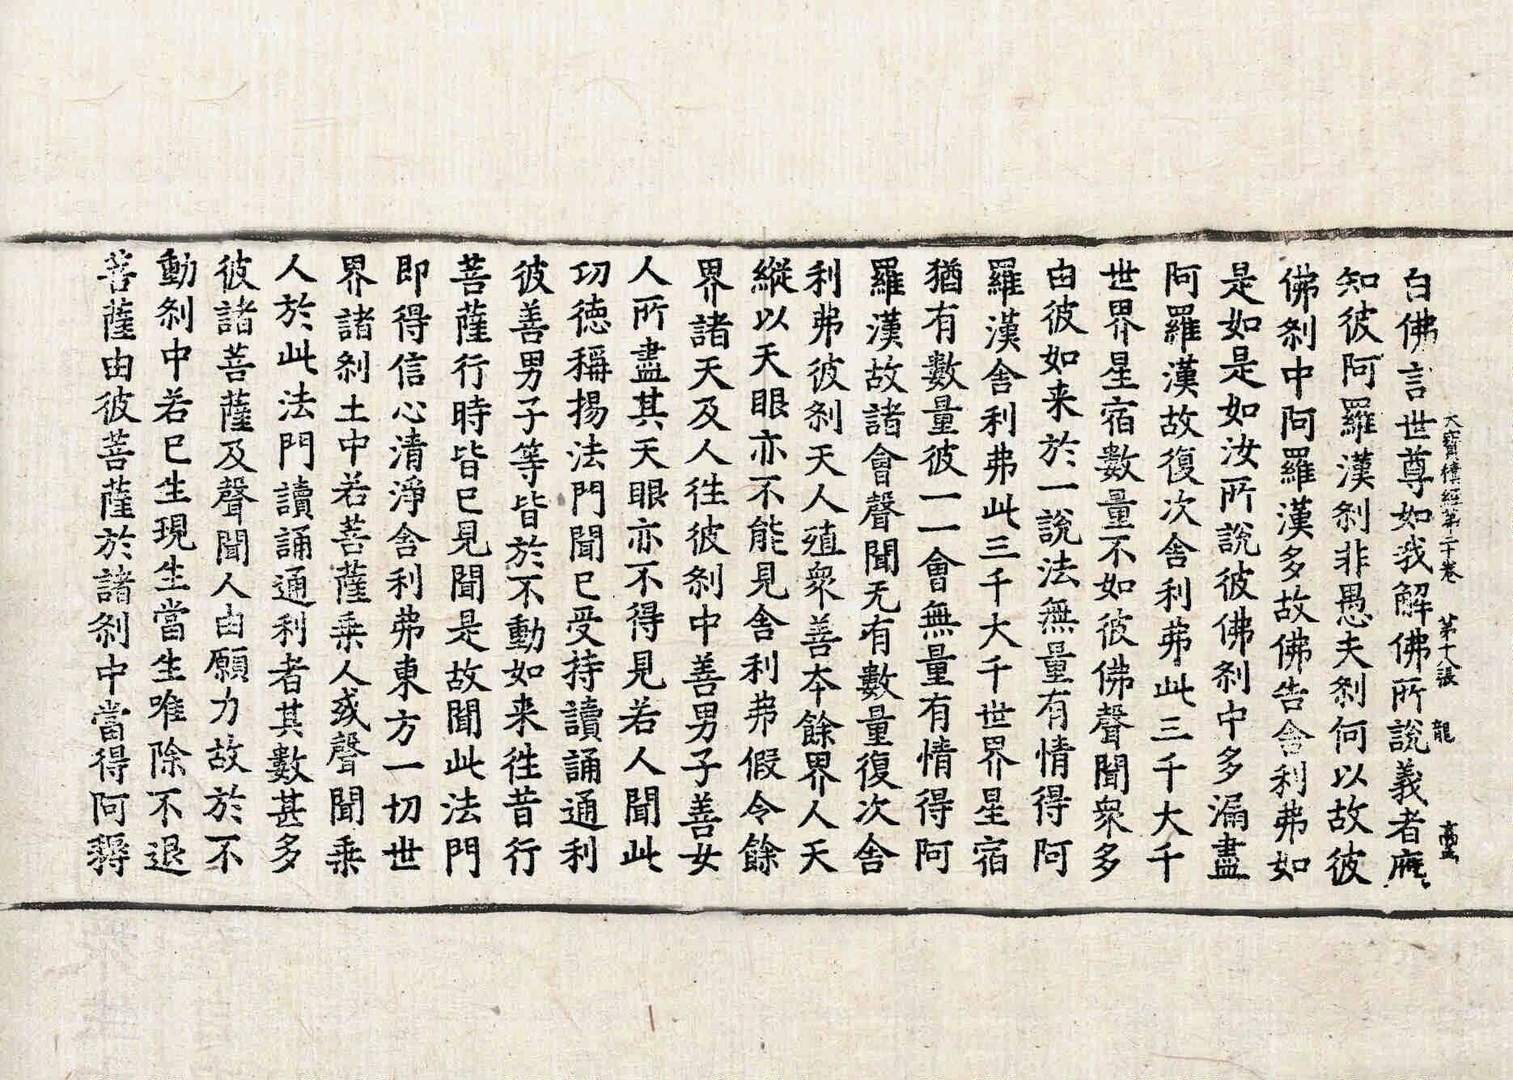 大寶積經第二十卷 第十八張 龍
白佛言世尊如我解佛所說義者應
知彼阿羅漢刹非愚夫刹何以故彼
佛刹中阿羅漢多故佛告舍利弗如
是如是如汝所說彼佛刹中多漏盡
阿羅漢故復次舍利弗此三千大千
世界星宿數量不如彼佛聲聞衆多
由彼如来於一說法無量有情得阿
羅漢舍利弗此三千大千世界星宿
猶有數量彼一一會無量有情得阿
羅漢故諸會聲聞无有數量復次舍
利弗彼刹天人殖衆善本餘界人天
縱以天眼亦不能見舍利弗假令餘
界諸天及人往彼刹中善男子善女
人所盡其天眼亦不得見若人聞此
功德稱揚法門聞已受持讀誦通利
彼善男子等皆於不動如来往昔行
菩薩行時皆已見聞是故聞此法門
即得信心清淨舍利弗東方一切世
界諸刹土中若菩薩乘人或聲聞乘
人於此法門讀誦通利者其數甚多
彼諸菩薩及聲聞人由願力故於不
動刹中若已生現生當生唯除不退
菩薩由彼菩薩於諸刹中當得阿耨